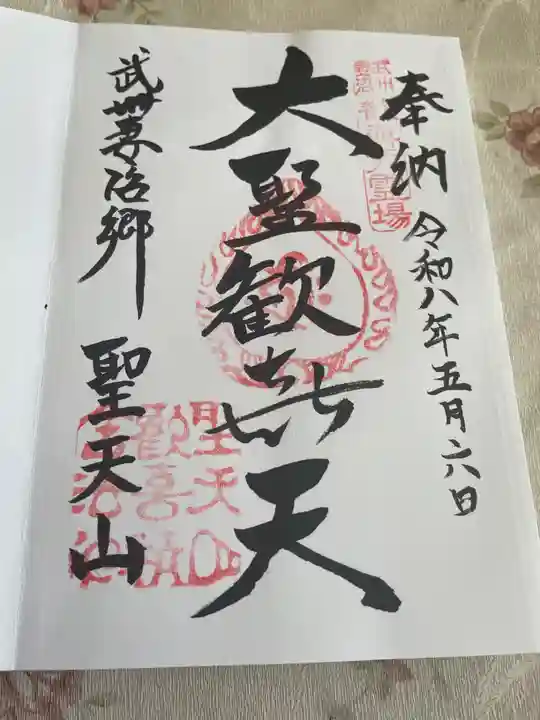 奉納 令和八年五月六日
大聖歓喜天
武州妻沼郷 聖天山
霊場
聖天山
歓喜院